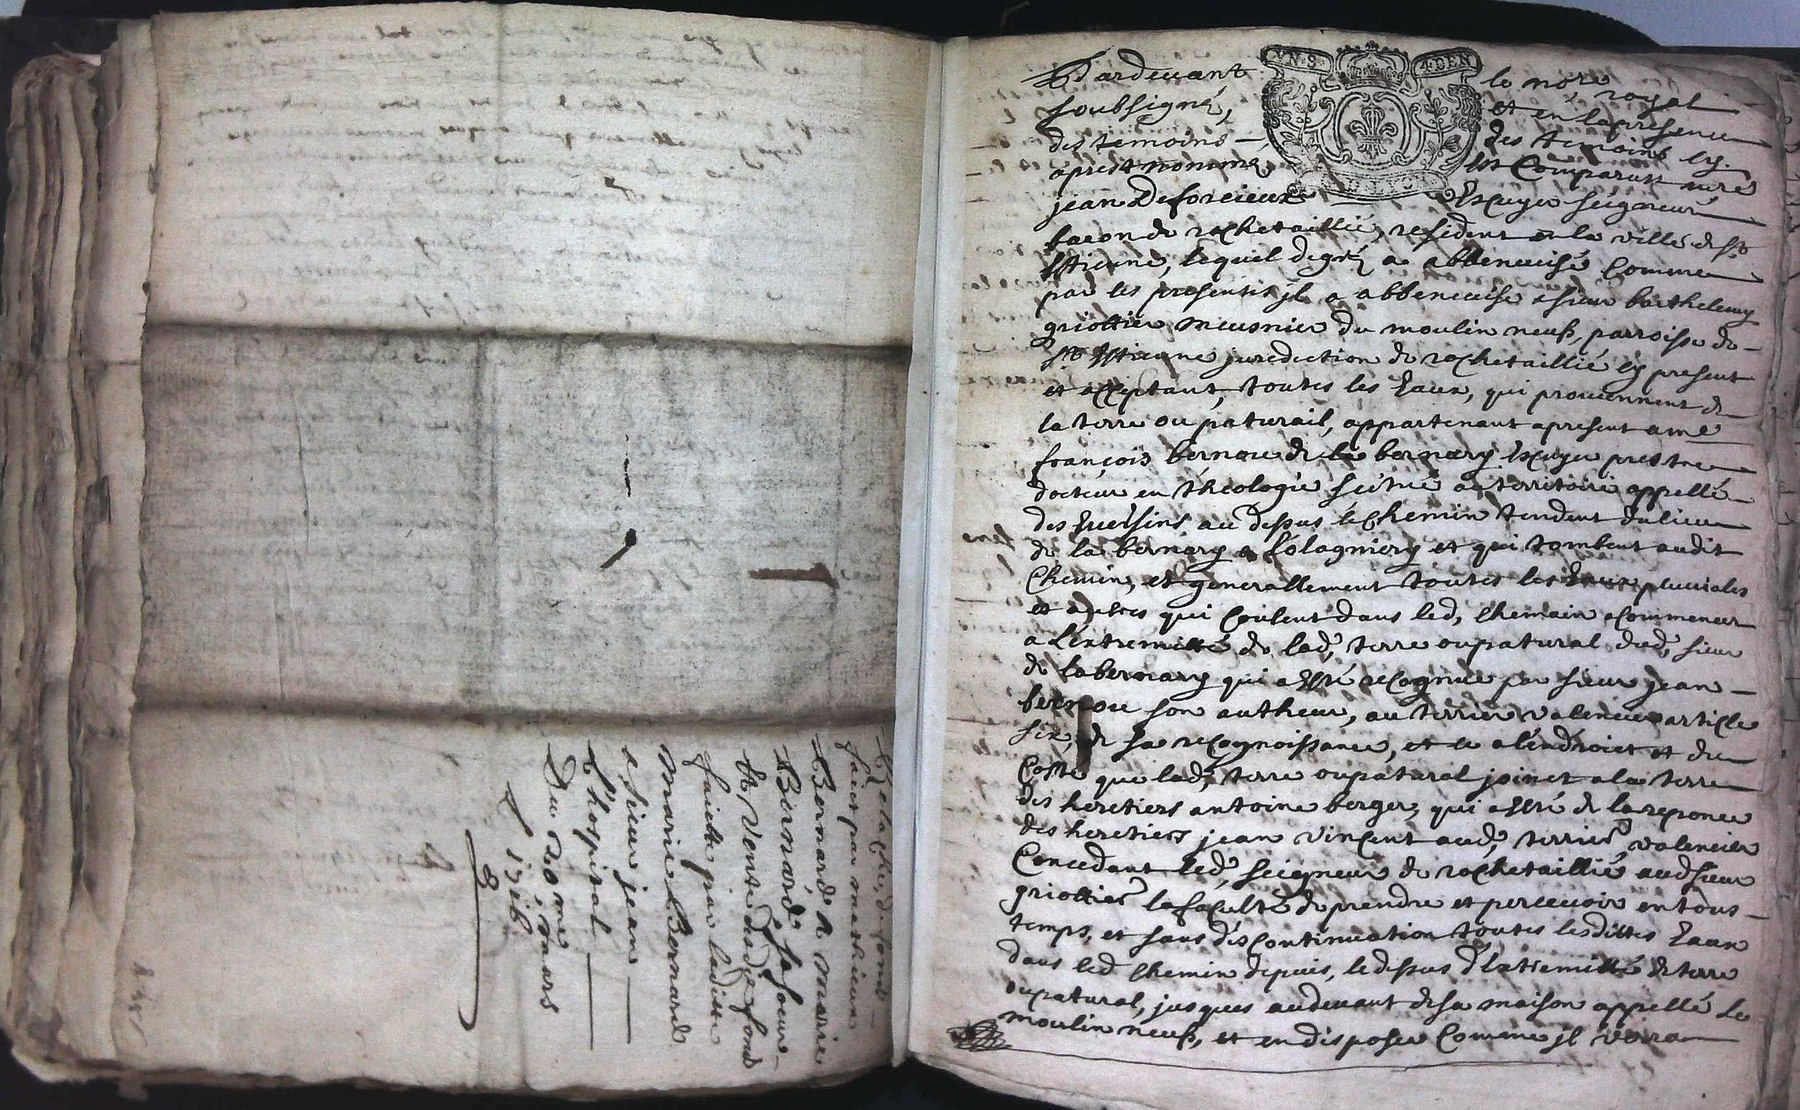 Relache, de fond
fait par mathieu
Bernard a marie
Bernard, sa soeur
Et vente dud. fond
faicte par laditte
marie Bernard
a sieur jean
L'hospital
Du 20me mars
1716
VN·S· 4·DEN
Pardevant le nore royal
soubsigné, et en la presence
des temoins des temoins cy.
apres nommes est Comparu mre
jean Deforcieux Escuyer seigneur
baron de rochetaillié, resident en la ville de st.
Estienne, lequel degré a abbenevisé Comme
par les presentes il a abbenevise a sieur barthelemy
griottier meusnier du moulin neuf, parroisse de
st. Estienne jurediction de rochetaillié cy present
et acceptant, toutes les Eaux, qui prouiennent de
la terre ou paturail, appartenant apresent a mre
françois bernou de la bernary Escuyer prestre
docteur en théologie scitué au territoire appellé
des au dessus le Chemin tendent du lieu
de la bernary a solagniery et qui tombent audit
Chemin, et generallement toutes les Eaux pluuiales
et autres qui Coulent dans led, Chemain a Commencer
a l'extremitté de lad, terre ou patural dud, sieur
de la bernary qui a esté recognue par sieur jean
bernou son autheur, au terrier valencier article
six, de sa recognoissance, et ce a l'endroict et du
Costé que lad, terre ou patural joinct a la terre
des heretiers antoine berger, qui a esté de la reponce
des heretiers jean vincent aud, terrier valencier
Concedant led, seigneur de rochetaillié aud sieur
griottier la faculté de prendre et perceuoir en tous
temps, et sans discontinuation toutes lesdittes Eaux
dans led Chemin depuis, le dessus d'extremitté de terre
ou patural, jusques au deuant de sa maison appellé le
moulin neuf, et en disposer Comme il verra